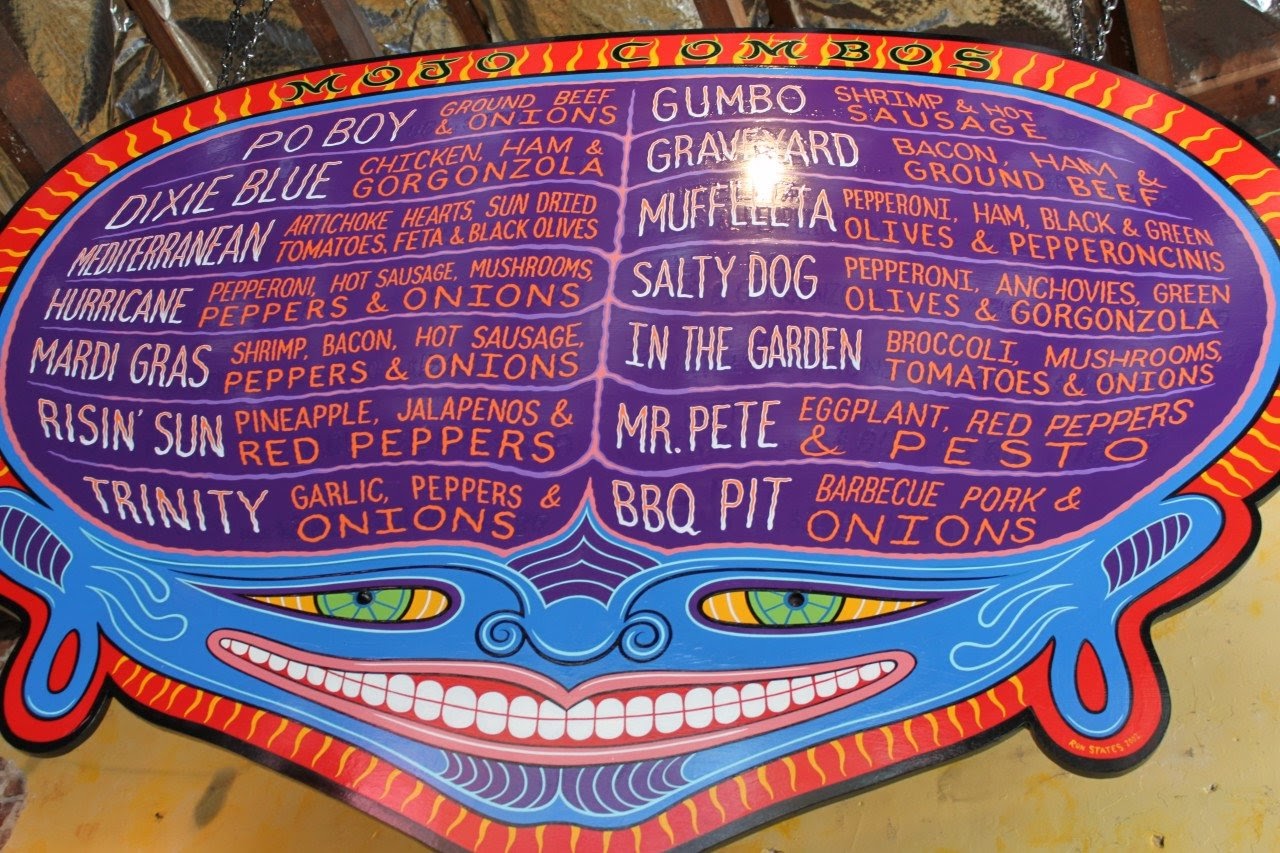 MOJO COMBOS
PO BOY GROUND BEEF
& ONIONS
DIXIE BLUE CHICKEN, HAM &
GORGONZOLA
MEDITERRANEAN ARTICHOKE HEARTS, SUN DRIED
TOMATOES, FETA & BLACK OLIVES
HURRICANE PEPPERONI, HOT SAUSAGE, MUSHROOMS,
PEPPERS & ONIONS
MARDI GRAS SHRIMP, BACON, HOT SAUSAGE,
PEPPERS & ONIONS
RISIN' SUN PINEAPPLE, JALAPENOS &
RED PEPPERS
TRINITY GARLIC, PEPPERS &
ONIONS
GUMBO SHRIMP & HOT
SAUSAGE
GRAVEYARD BACON, HAM &
GROUND BEEF
MUFFELETA PEPPERONI, HAM, BLACK & GREEN
OLIVES & PEPPERONCINIS
SALTY DOG PEPPERONI, ANCHOVIES, GREEN
OLIVES & GORGONZOLA
IN THE GARDEN BROCCOLI, MUSHROOMS,
TOMATOES & ONIONS
MR. PETE EGGPLANT, RED PEPPERS
& PESTO
BBQ PIT BARBECUE PORK &
ONIONS
STATES 2002